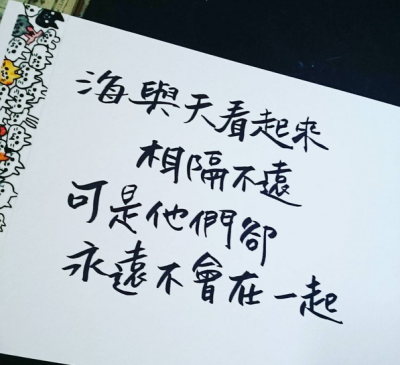 海與天看起來
相隔不遠
可是他們卻
永遠不會在一起